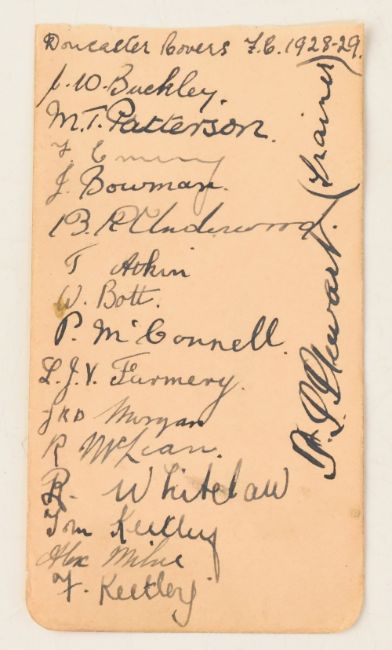 Doncaster Rovers F.C. 1928-29.
J. W. Buckley.
M.T. Patterson.
F Emery
J. Bowman.
B. R. Underwood.
T Atkin
W. Bott.
P. McConnell.
L. J. V. Furmery.
Morgan
R McLean.
R. Whitelaw
Tom Keetley
Alex Milne
F. Keetley
Stewart (Trainer)